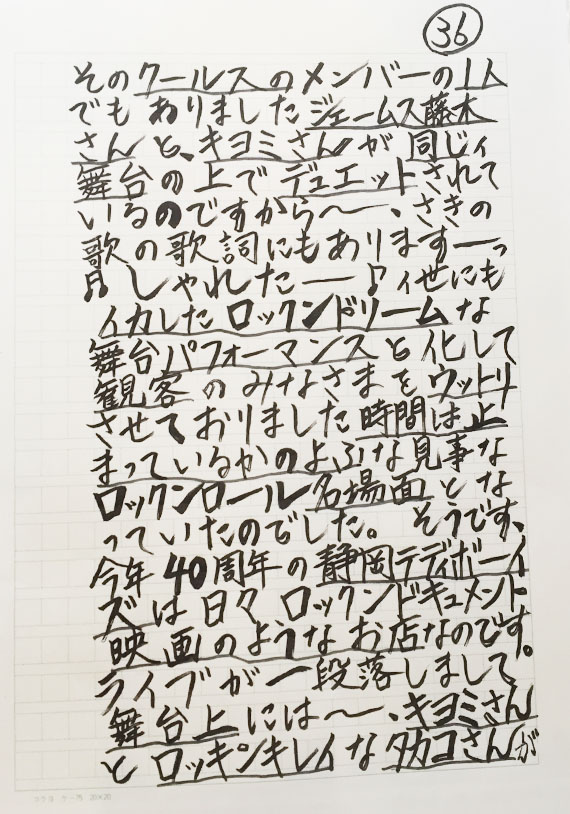 36
そのクールスのメンバーの1人
でもありましたジェームス藤木
さんと、キヨミさんが同じィ
舞台の上でデュエットされて
いるのですから〜、さきの
歌の歌詞にもありますーっ
♬しゃれたー♪ィせにも
イカしたロックンドリームな
舞台パフォーマンスと化して
観客のみなさまをウットリ
させておりました時間は止
まっているかのよふな見事な
ロックンロール名場面とな
っていたのでした。そうです、
今年40周年の静岡テディボーイ
ズは日々ロックンドキュメント
映画のようなお店なのです。
ライブが一段落しまして
舞台上には〜、キヨミさん
とロッキンキレイなタカコさんが
コクヨ ケー75 20×20